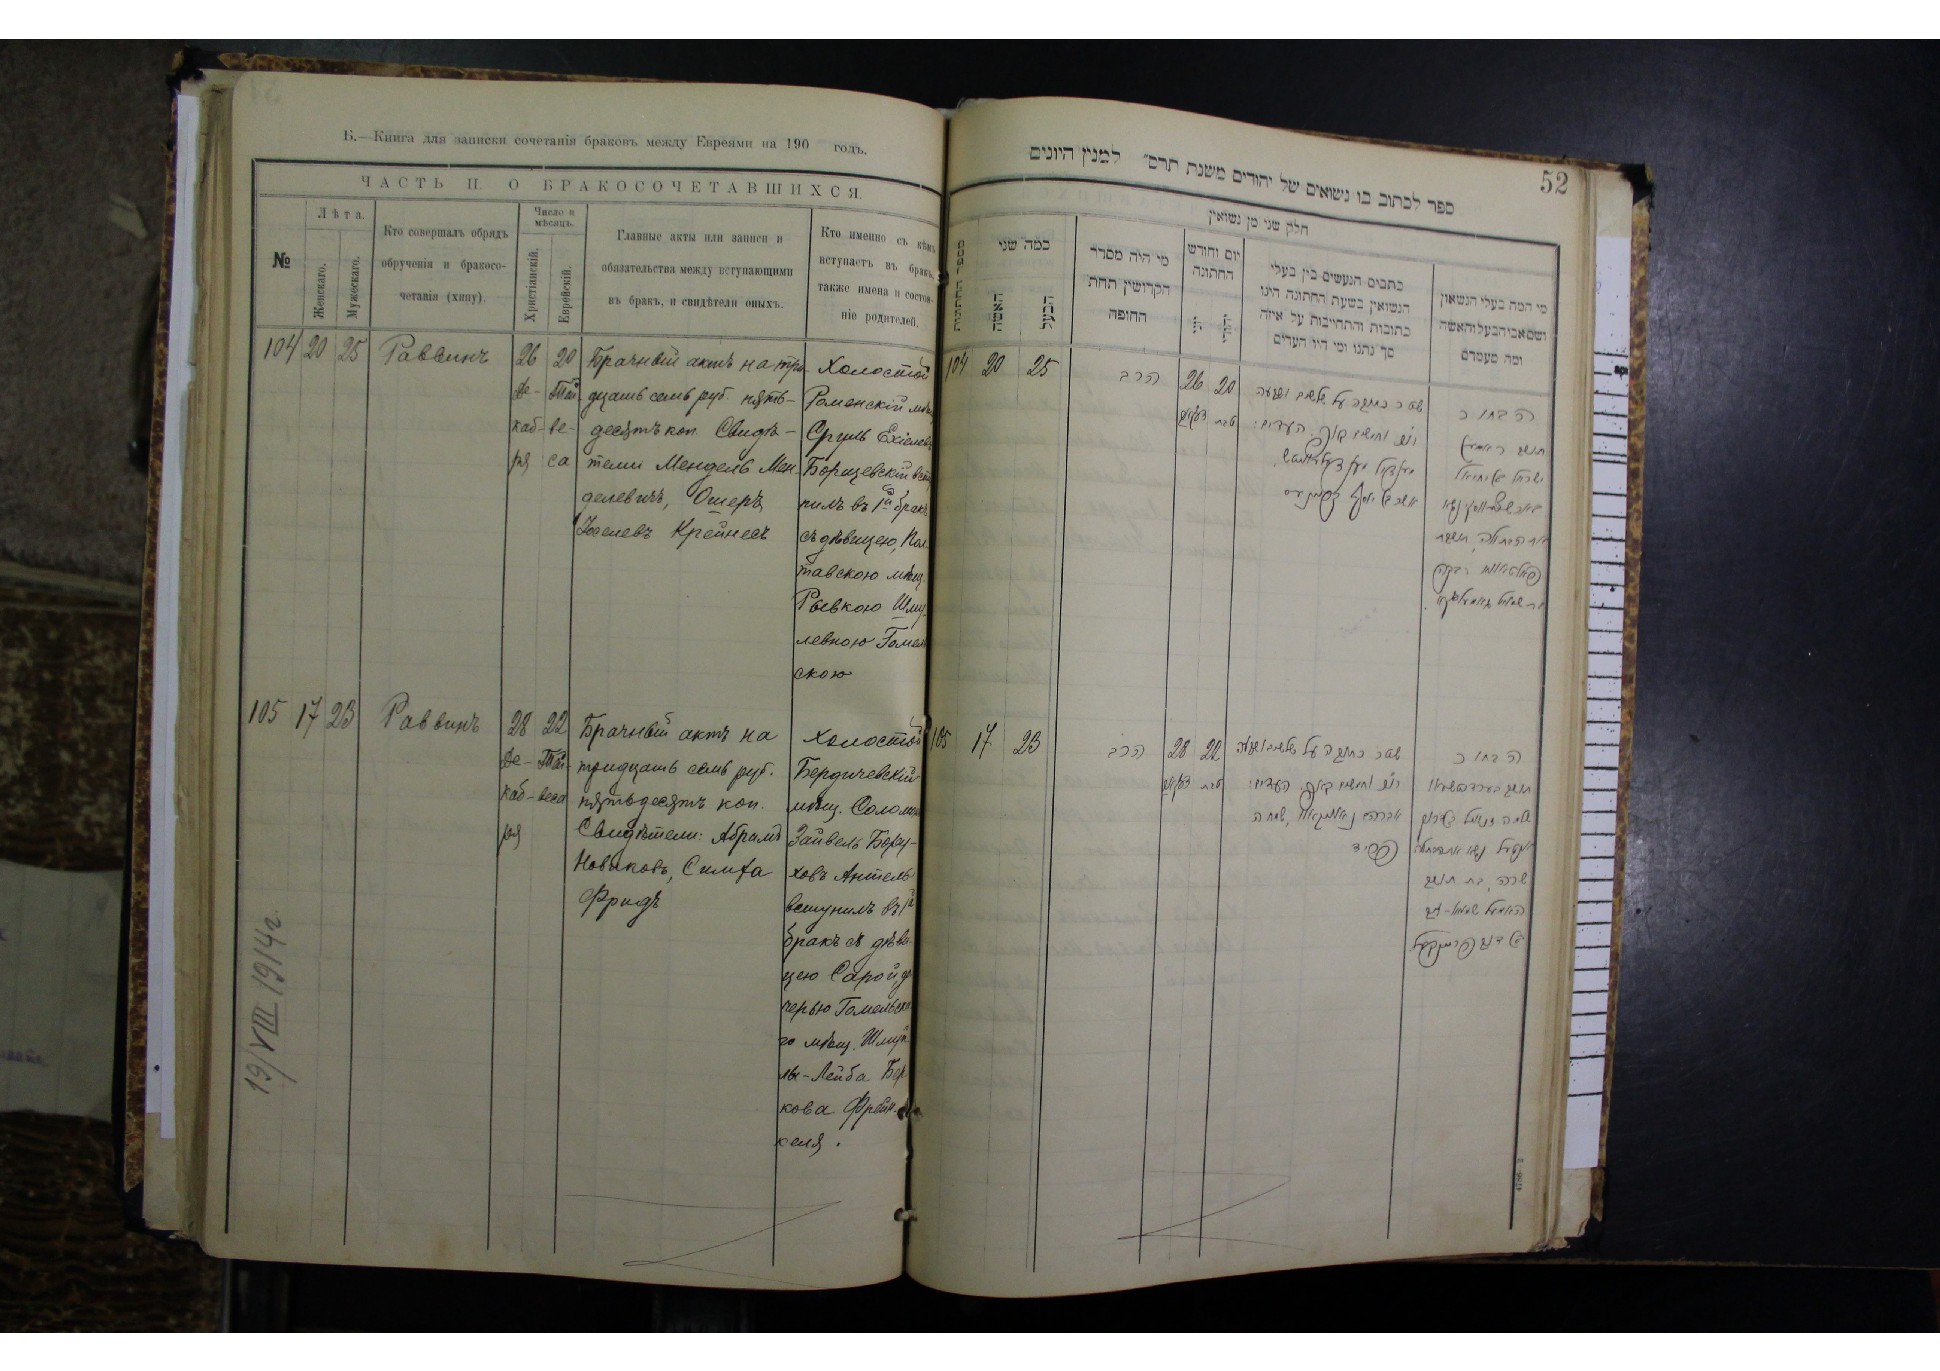 Б.—Книга для записки сочетанія браковъ между Евреями на 190 годъ.
ЧАСТЬ II. О БРАКОСОЧЕТАВШИХСЯ.
№
Лѣта.
Женскаго.
Мужескаго.
Кто совершалъ обрядъ
обрученія и бракосо-
четанія (хипу).
Число и
мѣсяцъ.
Христіанскій.
Еврейскій.
Главные акты или записи и
обязательства между вступающими
въ бракъ, и свидѣтели оныхъ.
Кто именно съ кѣмъ
вступаетъ въ бракъ,
также имена и состоя-
ніе родителей.
104 20 25 Раввинъ 26 20
Де- Тай
каб- ве-
ря са
Брачный актъ на три
дцать семь руб. пять-
десятъ коп. Свидѣ-
тели Мендель Мен
делевичъ, Ошеръ
Іоселевъ Крейнесъ
Холостой
Роменскій мѣщ
Сруль Ехіелевъ
Борщевскій всту
пилъ въ 1й бракъ
съ дѣвицею, Пол-
тавскою мѣщ.
Рывкою Шму-
левною Гомель
скою
105 17 23 Раввинъ 28 22
Де- Тай-
каб- веса
ря
Брачный актъ на
тридцать семь руб.
пятьдесятъ коп.
Свидѣтели: Абрамъ
Новиковъ, Симха
Фридъ
Холостой
Бердичевскій
мѣщ. Соломонъ
Зайвель Бору-
ховъ Ангель
вступилъ въ 1й
бракъ съ дѣви-
цею Сарой, до
черью Гомельска
го мѣщ. Шмуй
лы-Лейба Бер
кова Френ-
келя.
19/VIII 1914 г.
52
ספר לכתוב בו נשואים של יהודים משנת תרס״ למנין היונים
חלק שני מן נשואין
מספר החתונות
כמה שני
האשה
הבעל
מי היה מסדר
הקדושין תחת
החופה
יום וחודש
החתונה
יוני
יהודי
כתבים הנעשים בין בעלי
הנשואין בשעת החתונה הינו
כתובות והתחייבות על איזה
סך נתנו ומי היו העדים
מי המה בעלי הנשואין
ושם אבי הבעל והאשה
ומה מעמדם
104 20 25 הרב 26 20
טבת
שטר כתובה על שלשים ושבעה
העדים:
הבחור
תושב
ישראל
105 17 23 הרב 28 22
טבת
שטר כתובה על שלשים ושבעה
העדים:
פריד
הבחור
תושב
4786 2